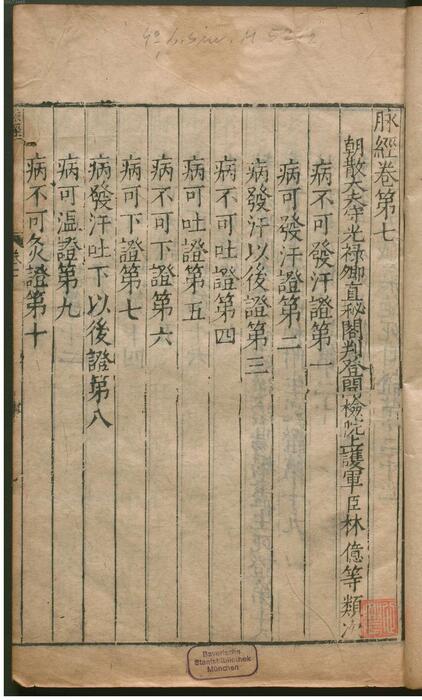 4° L.sin. H 52-2
脉經卷第七
朝散大夫守光禄卿直秘閣判登聞檢院上護軍臣林億等類次
病不可發汗證第一
病可發汗證第二
病發汗以後證第三
病不可吐證第四
病可吐證第五
病不可下證第六
病可下證第七
病發汗吐下以後證第八
病可温證第九
病不可灸證第十
Bayerische
Staatsbibliothek
München